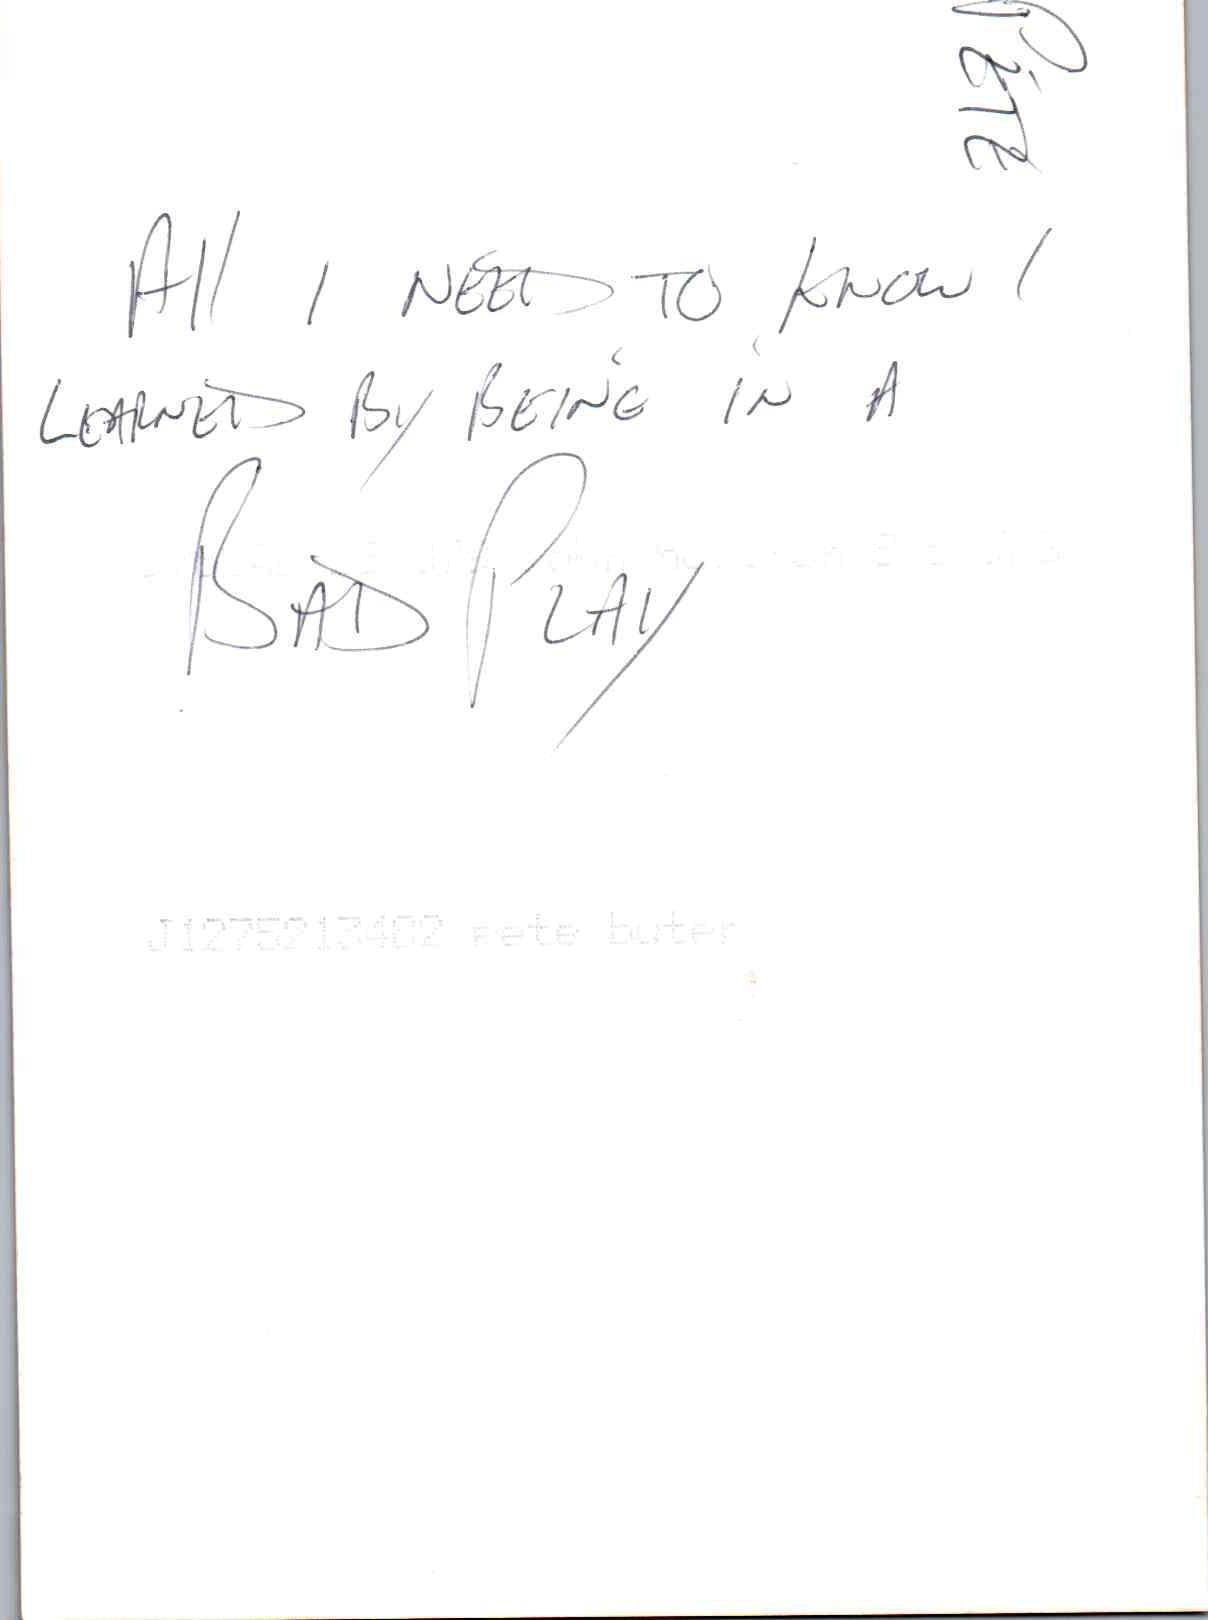 PETE
All I NEED TO KNOW I
LEARNED BY BEING IN A
BAD PLAY
J1275213402 pete buter